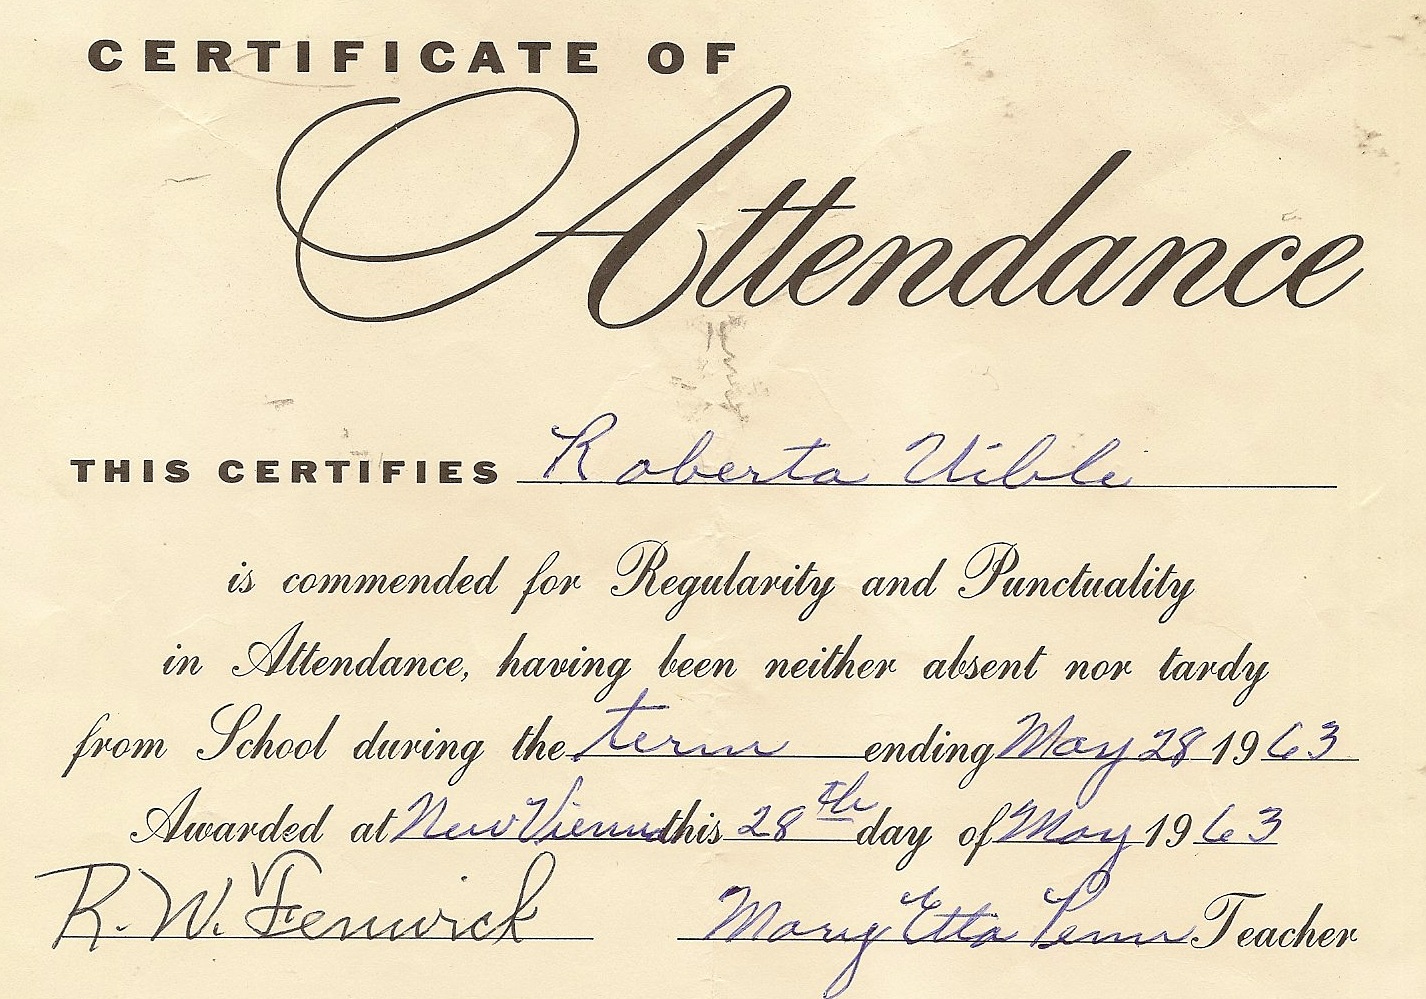 CERTIFICATE OF
Attendance
THIS CERTIFIES Roberta Uible
is commended for Regularity and Punctuality
in Attendance, having been neither absent nor tardy
from School during the term ending May 28 1963
Awarded at New Vienna this 28th day of May 1963
R. W. Fenwick Mary Etta Penn Teacher